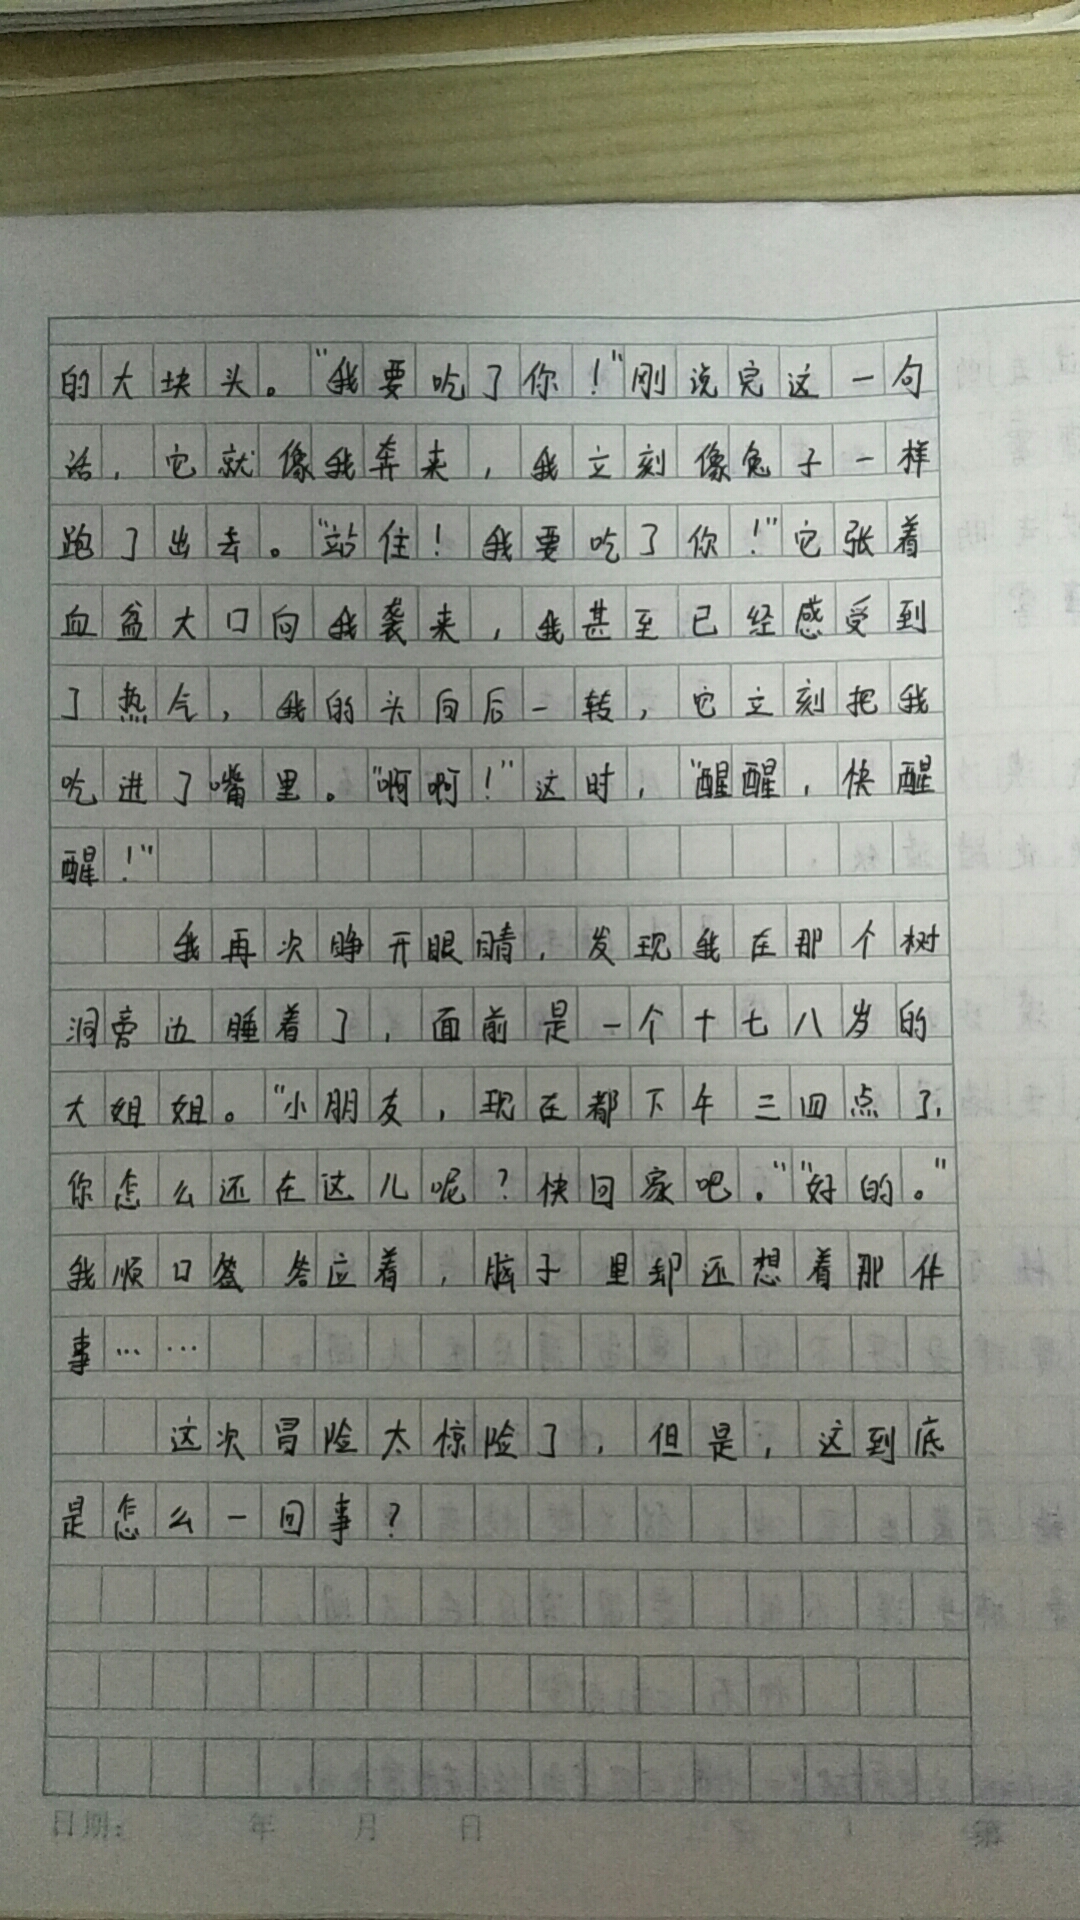 的大块头。“我要吃了你！”刚说完这一句
话，它就像我奔来，我立刻像兔子一样
跑了出去。“站住！我要吃了你！”它张着
血盆大口向我袭来，我甚至已经感受到
了热气，我的头向后一转，它立刻把我
吃进了嘴里。“啊啊！”这时，“醒醒，快醒
醒！”
我再次睁开眼睛，发现我在那个树
洞旁边睡着了，面前是一个十七八岁的
大姐姐。“小朋友，现在都下午三四点了，
你怎么还在这儿呢？快回家吧。”“好的。”
我顺口答答应着，脑子里却还想着那件
事……
这次冒险太惊险了，但是，这到底
是怎么一回事？
日期： 年 月 日 第